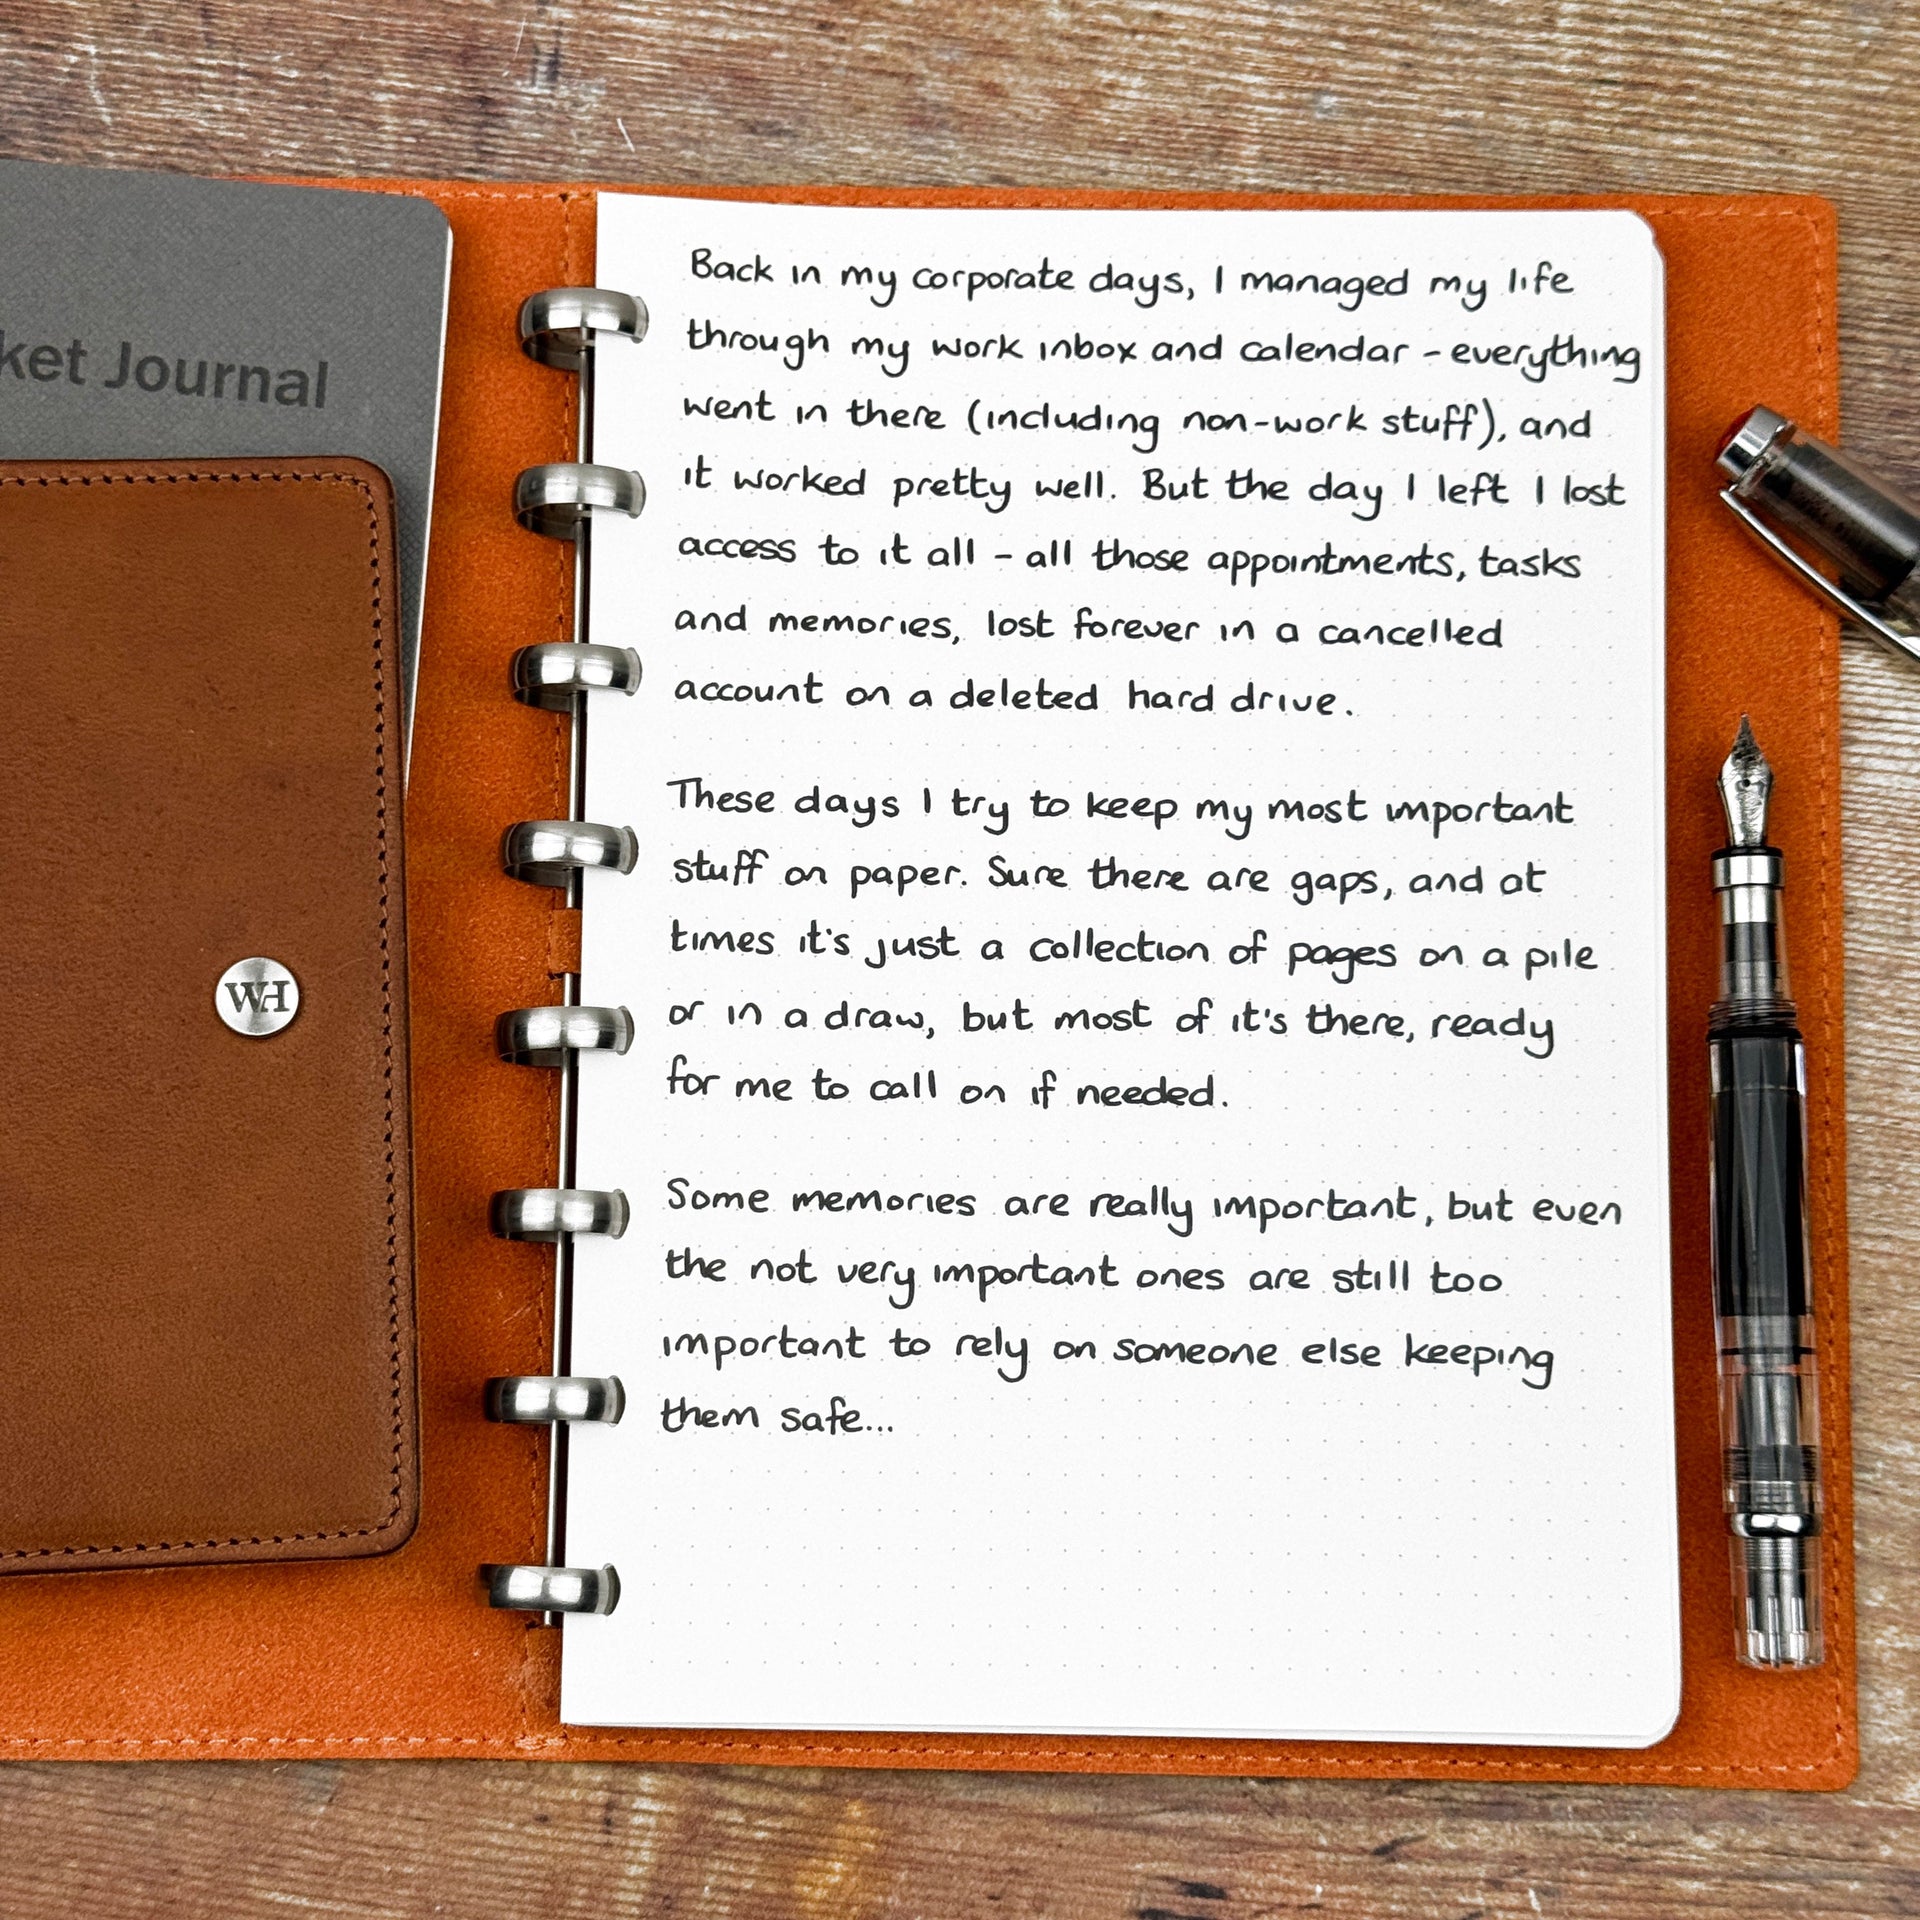 ket Journal
WH
Back in my corporate days, I managed my life
through my work inbox and calendar - everything
went in there (including non-work stuff), and
it worked pretty well. But the day I left I lost
access to it all - all those appointments, tasks
and memories, lost forever in a cancelled
account on a deleted hard drive.
These days I try to keep my most important
stuff on paper. Sure there are gaps, and at
times it's just a collection of pages on a pile
or in a draw, but most of it's there, ready
for me to call on if needed.
Some memories are really important, but even
the not very important ones are still too
important to rely on someone else keeping
them safe...